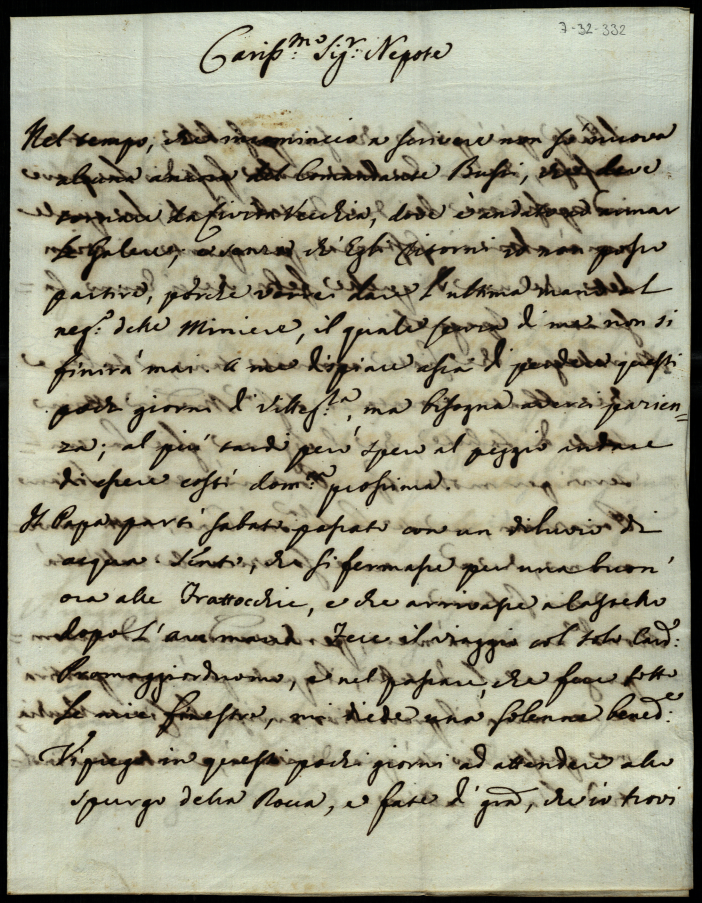 7-32-332
Cariss.mo Sig.r Nepote
Nel tempo, che incomincio a scrivere non so nuova
alcuna ancora del Comandante Bussi, che deve
tornare da Civita Vecchia, dove è andato ad
Le Galere, e senza ch'Egli ritorni io non posso
partire, perche vorrei dare l'ultima mano al
neg.o delle Miniere, il quale senza di me non si
finirà mai. A me dispiace assai di perdere questi
pochi giorni di Villegg.a, ma bisogna averci pazien=
za; al più tardi però spero al peggio andare
di essere costì dom.ca prossima.
Il Papa partì sabato passato con un diluvio di
acqua. Sento, che si fermasse per una buon'
ora alle Frattocchie, e che arrivasse a Castello
dopo l'ave maria. Fece il viaggio col solo Card:
Promaggiorduomo, e nel passare, che fece sotto
Le mie finestre, mi diede una solenne bened.e
Vi prego in questi pochi giorni ad attendere allo
spurgo della Rocca, e fate di gra, che io trovi